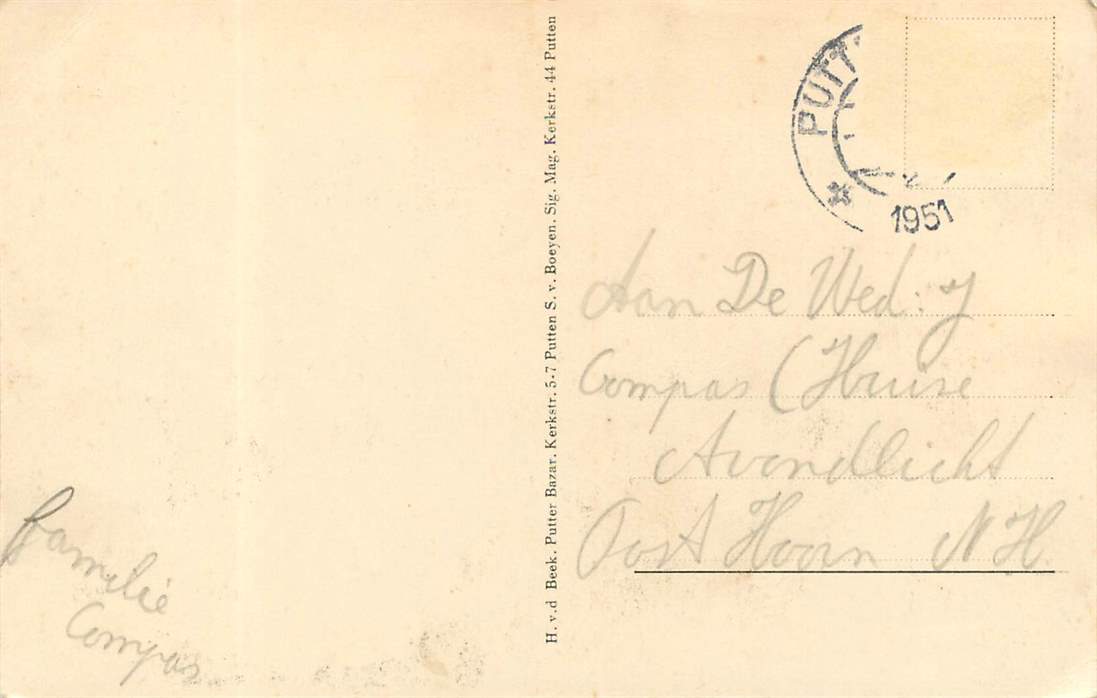 Familie
Compas
H. v.d Beek. Putter Bazar. Kerkstr. 5-7 Putten S. v. Boeyen. Sig. Mag. Kerkstr. 44 Putten
PUTT
1951
Aan De Wed. J
Compas (Huise
Avondlicht
Post Hoorn NH